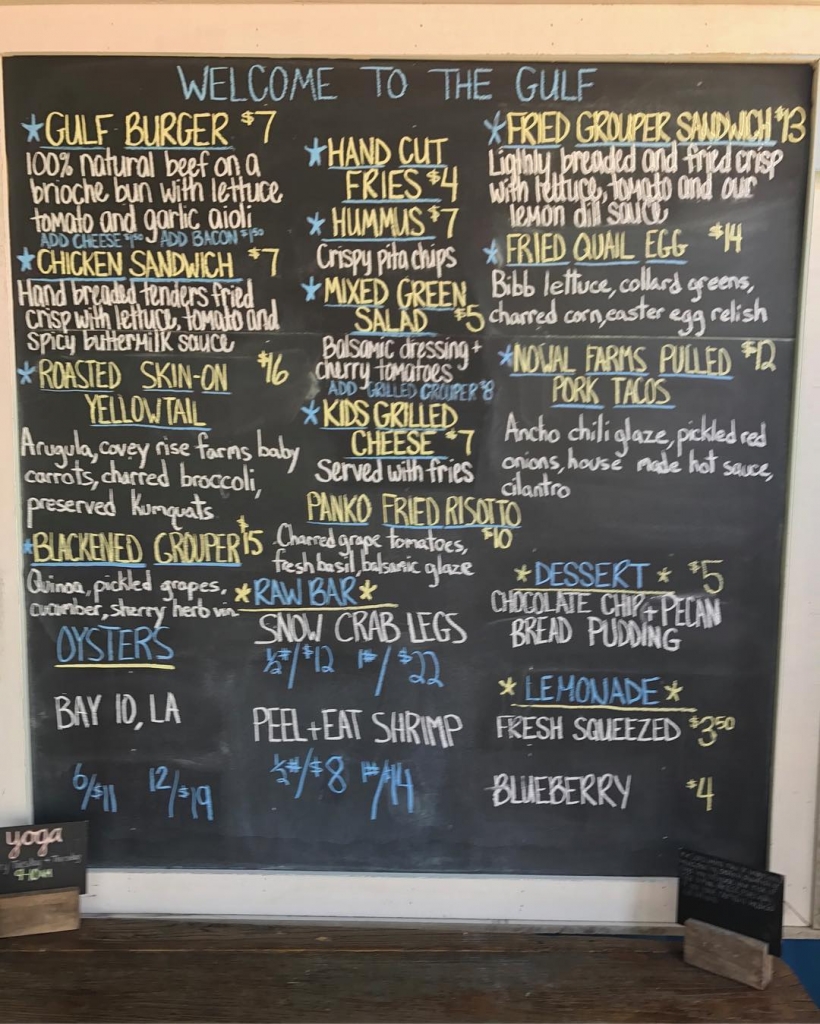 WELCOME TO THE GULF
*GULF BURGER $7
100% natural beef on a
brioche bun with lettuce
tomato and garlic aioli
ADD CHEESE $1.50 ADD BACON $1.50
*CHICKEN SANDWICH $7
Hand breaded tenders fried
crisp with lettuce, tomato and
spicy buttermilk sauce
*ROASTED SKIN-ON $16
YELLOWTAIL
Arugula, covey rise farms baby
carrots, charred broccoli,
preserved Kumquats
*BLACKENED GROUPER $15
Quinoa, pickled grapes,
cucumber, sherry herb vin.
OYSTERS
BAY 10, LA
6/$11 12/$19
*HAND CUT
FRIES $4
*HUMMUS $7
Crispy pita chips
*MIXED GREEN
SALAD $5
Balsamic dressing +
cherry tomatoes
ADD GRILLED GROUPER $8
*KIDS GRILLED
CHEESE $7
Served with fries
PANKO FRIED RISOTTO
$10
Charred grape tomatoes,
fresh basil, balsamic glaze
*RAW BAR*
SNOW CRAB LEGS
½#/$12 1#/$22
PEEL+EAT SHRIMP
½#/$8 1#/$14
*FRIED GROUPER SANDWICH $13
Ligthly breaded and fried crisp
with lettuce, tomato and our
lemon dill sauce
*FRIED QUAIL EGG $14
Bibb lettuce, collard greens,
charred corn, easter egg relish
*NOWAL FARMS PULLED $12
PORK TACOS
Ancho chili glaze, pickled red
onions, house made hot sauce,
cilantro
*DESSERT* $5
CHOCOLATE CHIP + PECAN
BREAD PUDDING
*LEMONADE*
FRESH SQUEEZED $3.50
BLUEBERRY $4
yoga
9-10AM